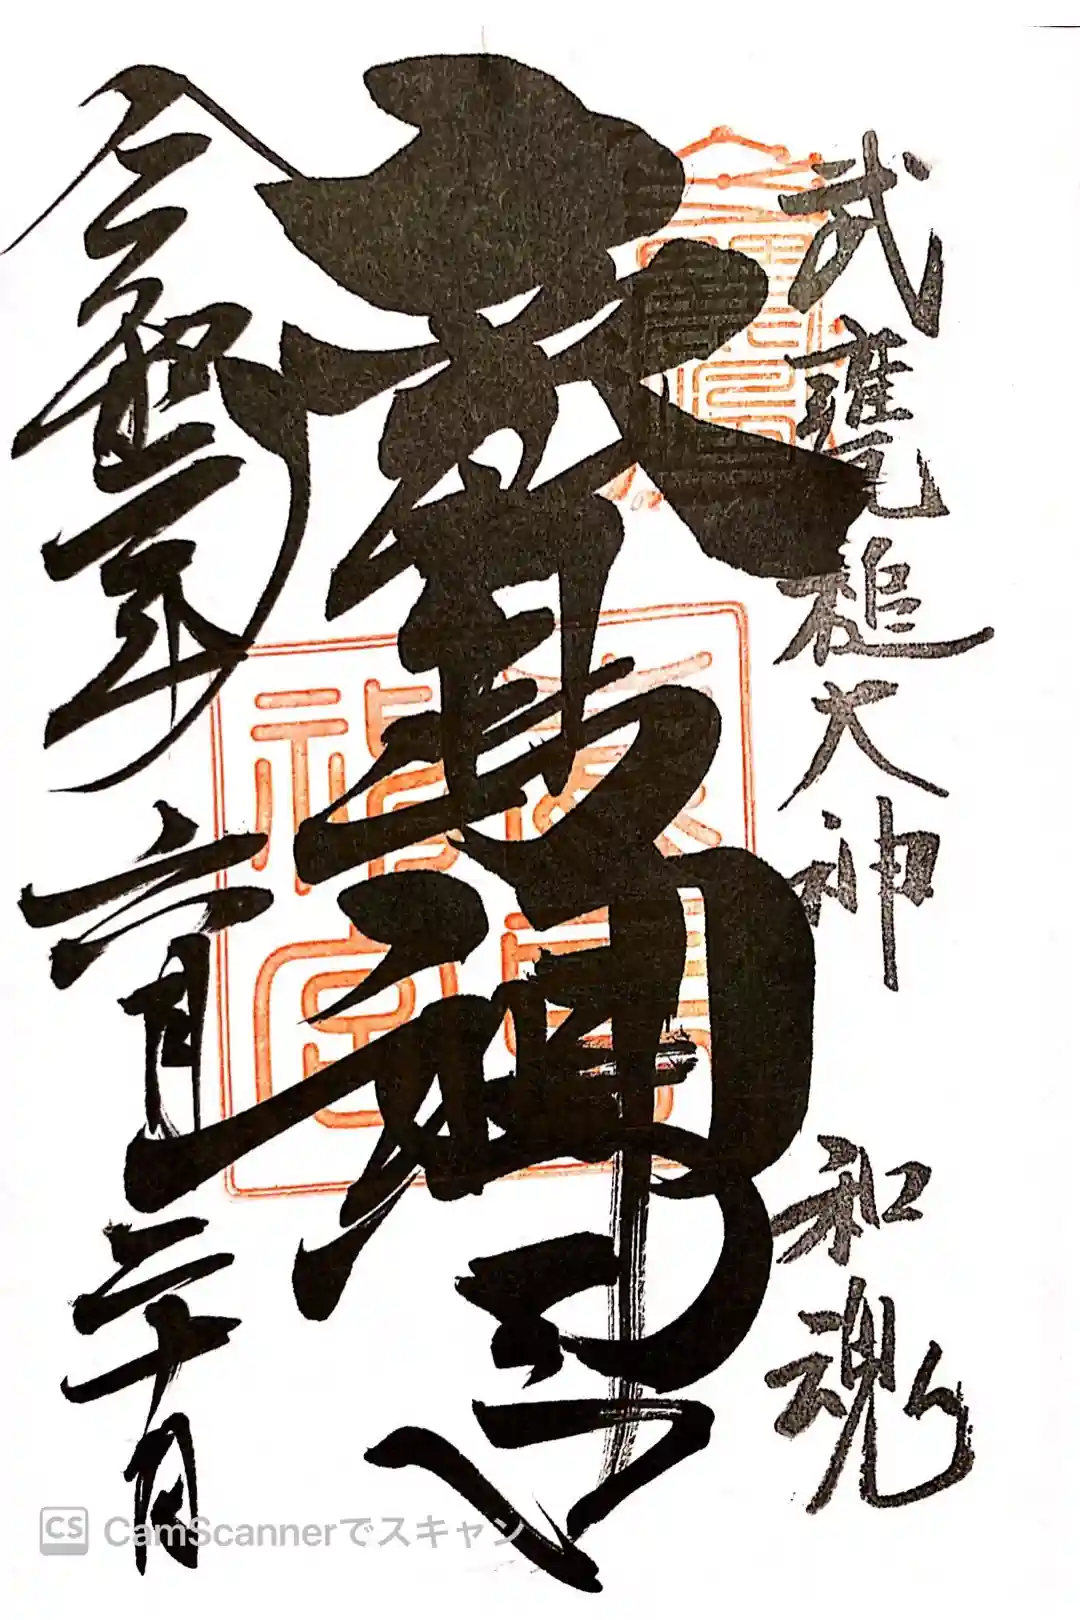 武甕槌大神 和魂
鹿島神宮
令和 年六月二十日
CS CamScannerでスキャン